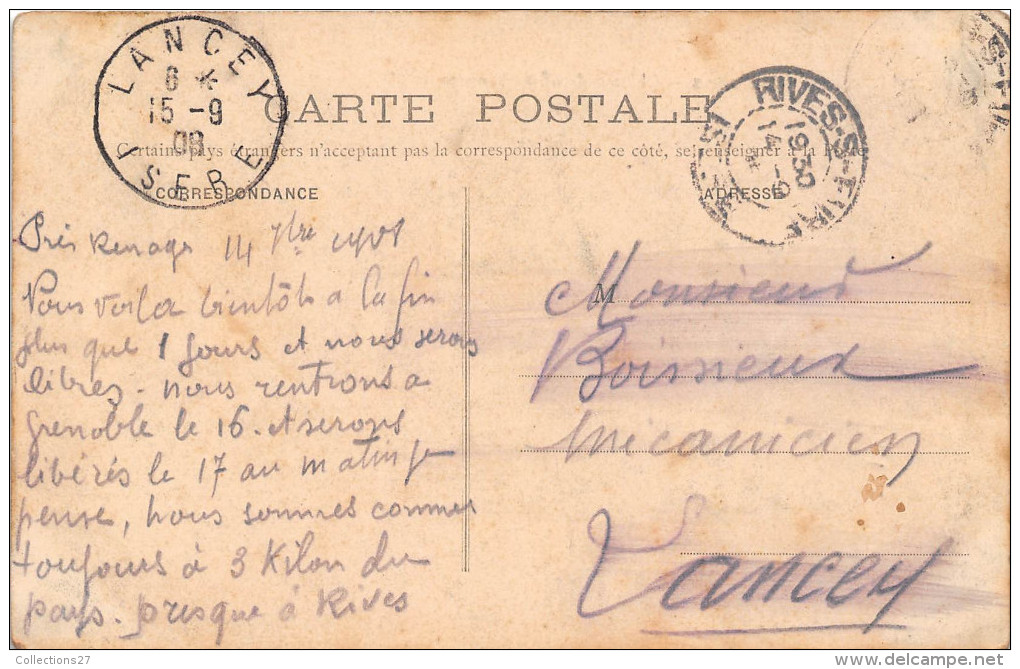 LANCEY
6 *
15 -9
08
ISERE
CARTE POSTALE
RIVES-S-FURE
1930
14 -9
Certains pays étrangers n'acceptant pas la correspondance de ce côté, se renseigner à la Poste
CORRESPONDANCE
ADRESSE
Près Renage 14 7bre
Nous voila bientôt a la fin
plus que 1 jours et nous serons
libres. nous rentrons a
Grenoble le 16. et serons
libérés le 17 au matin je
pense, nous sommes comme
toujours à 3 Kilom du
pays. presque à Rives
M
Monsieur
Boissieux
mécanicien
Lancey
Collections27
www.delcampe.net